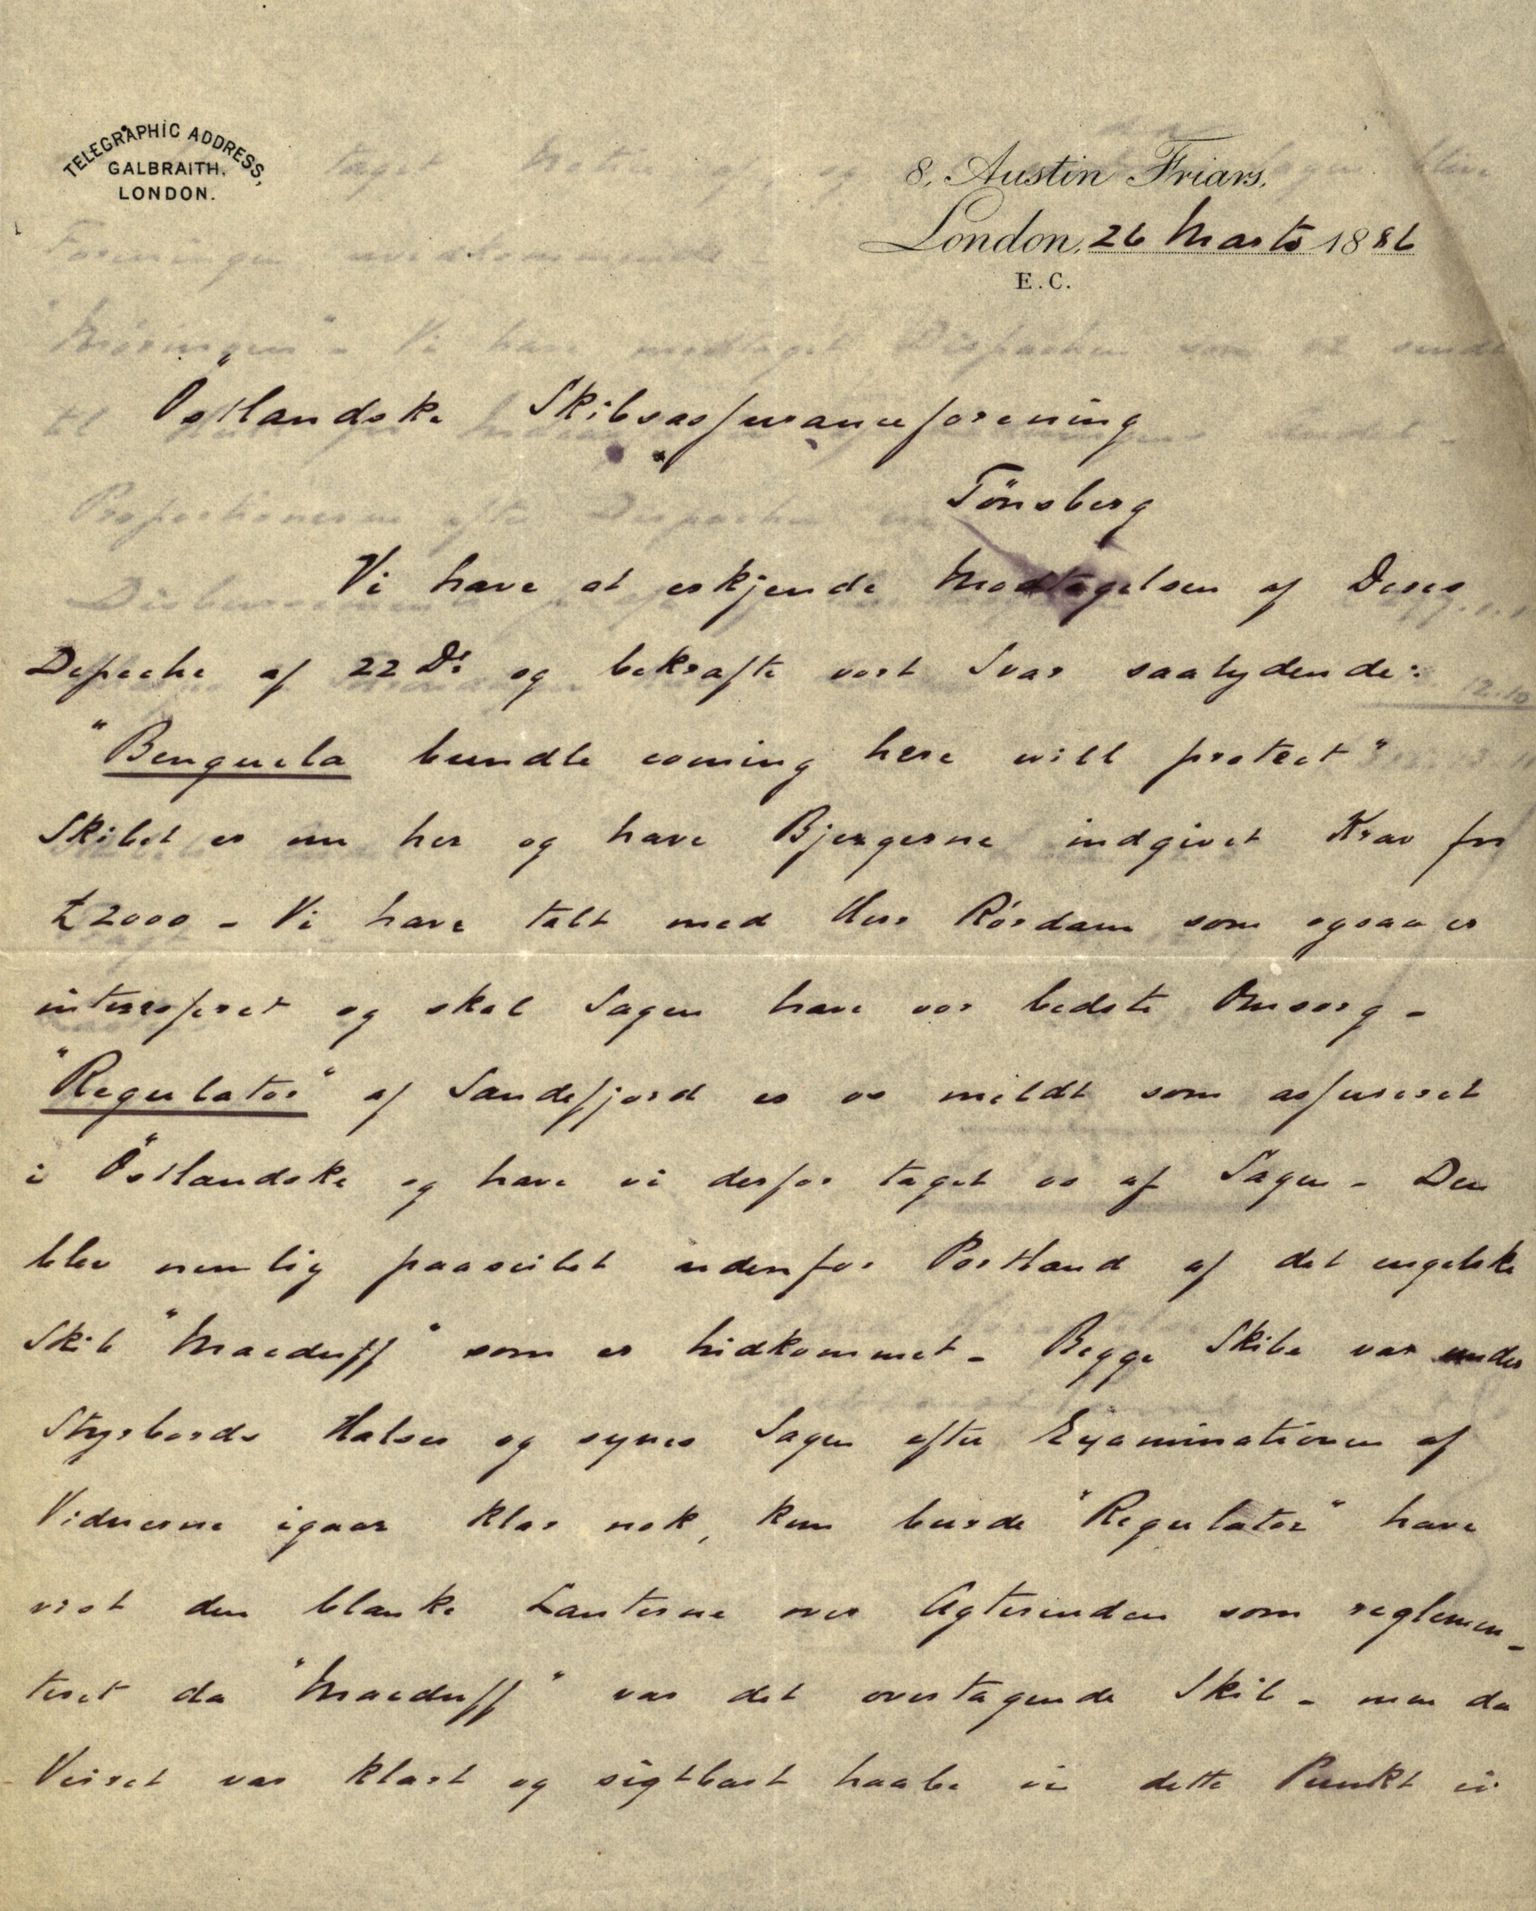 TELEGRAPHIC ADDRESS,
GALBRAITH,
LONDON.
8, Austin Friars,
London, 26 Marts 1886
E.C.
Östlandske Skibsassuranceforening
Tönsberg
Vi have at erkjende Modtagelsen af Deres
Depeche af 22 Ds og bekrafte vort Svar saalydende:
"Benguela bundle coming here will protect"
Skibet er nu her og have Bjergerne indgivet Krav for
£2000 - Vi have talt med Herr Rördam som ogsaa er
interesseret og skal Sagen have vor bedste Omsorg -
"Regulator" af Sandefjord er os meldt som assureret
i Östlandske og have vi derfor taget os af Sagen - Den
blev nemlig paaseilet udenfor Portland af det engelske
Skib "Macduff" som er hidkommet - Begge Skibe var under
Styrbords Halser og synes Sagen efter Examinationen af
Vidnerne igaar klar nok, kun burde "Regulator" have
vist den blanke Lanterne over Agterenden som reglemen-
teret da "Macduff" var det overtagende Skib - men da
Veiret var klart og sigtbart haabe vi dette Punkt ei